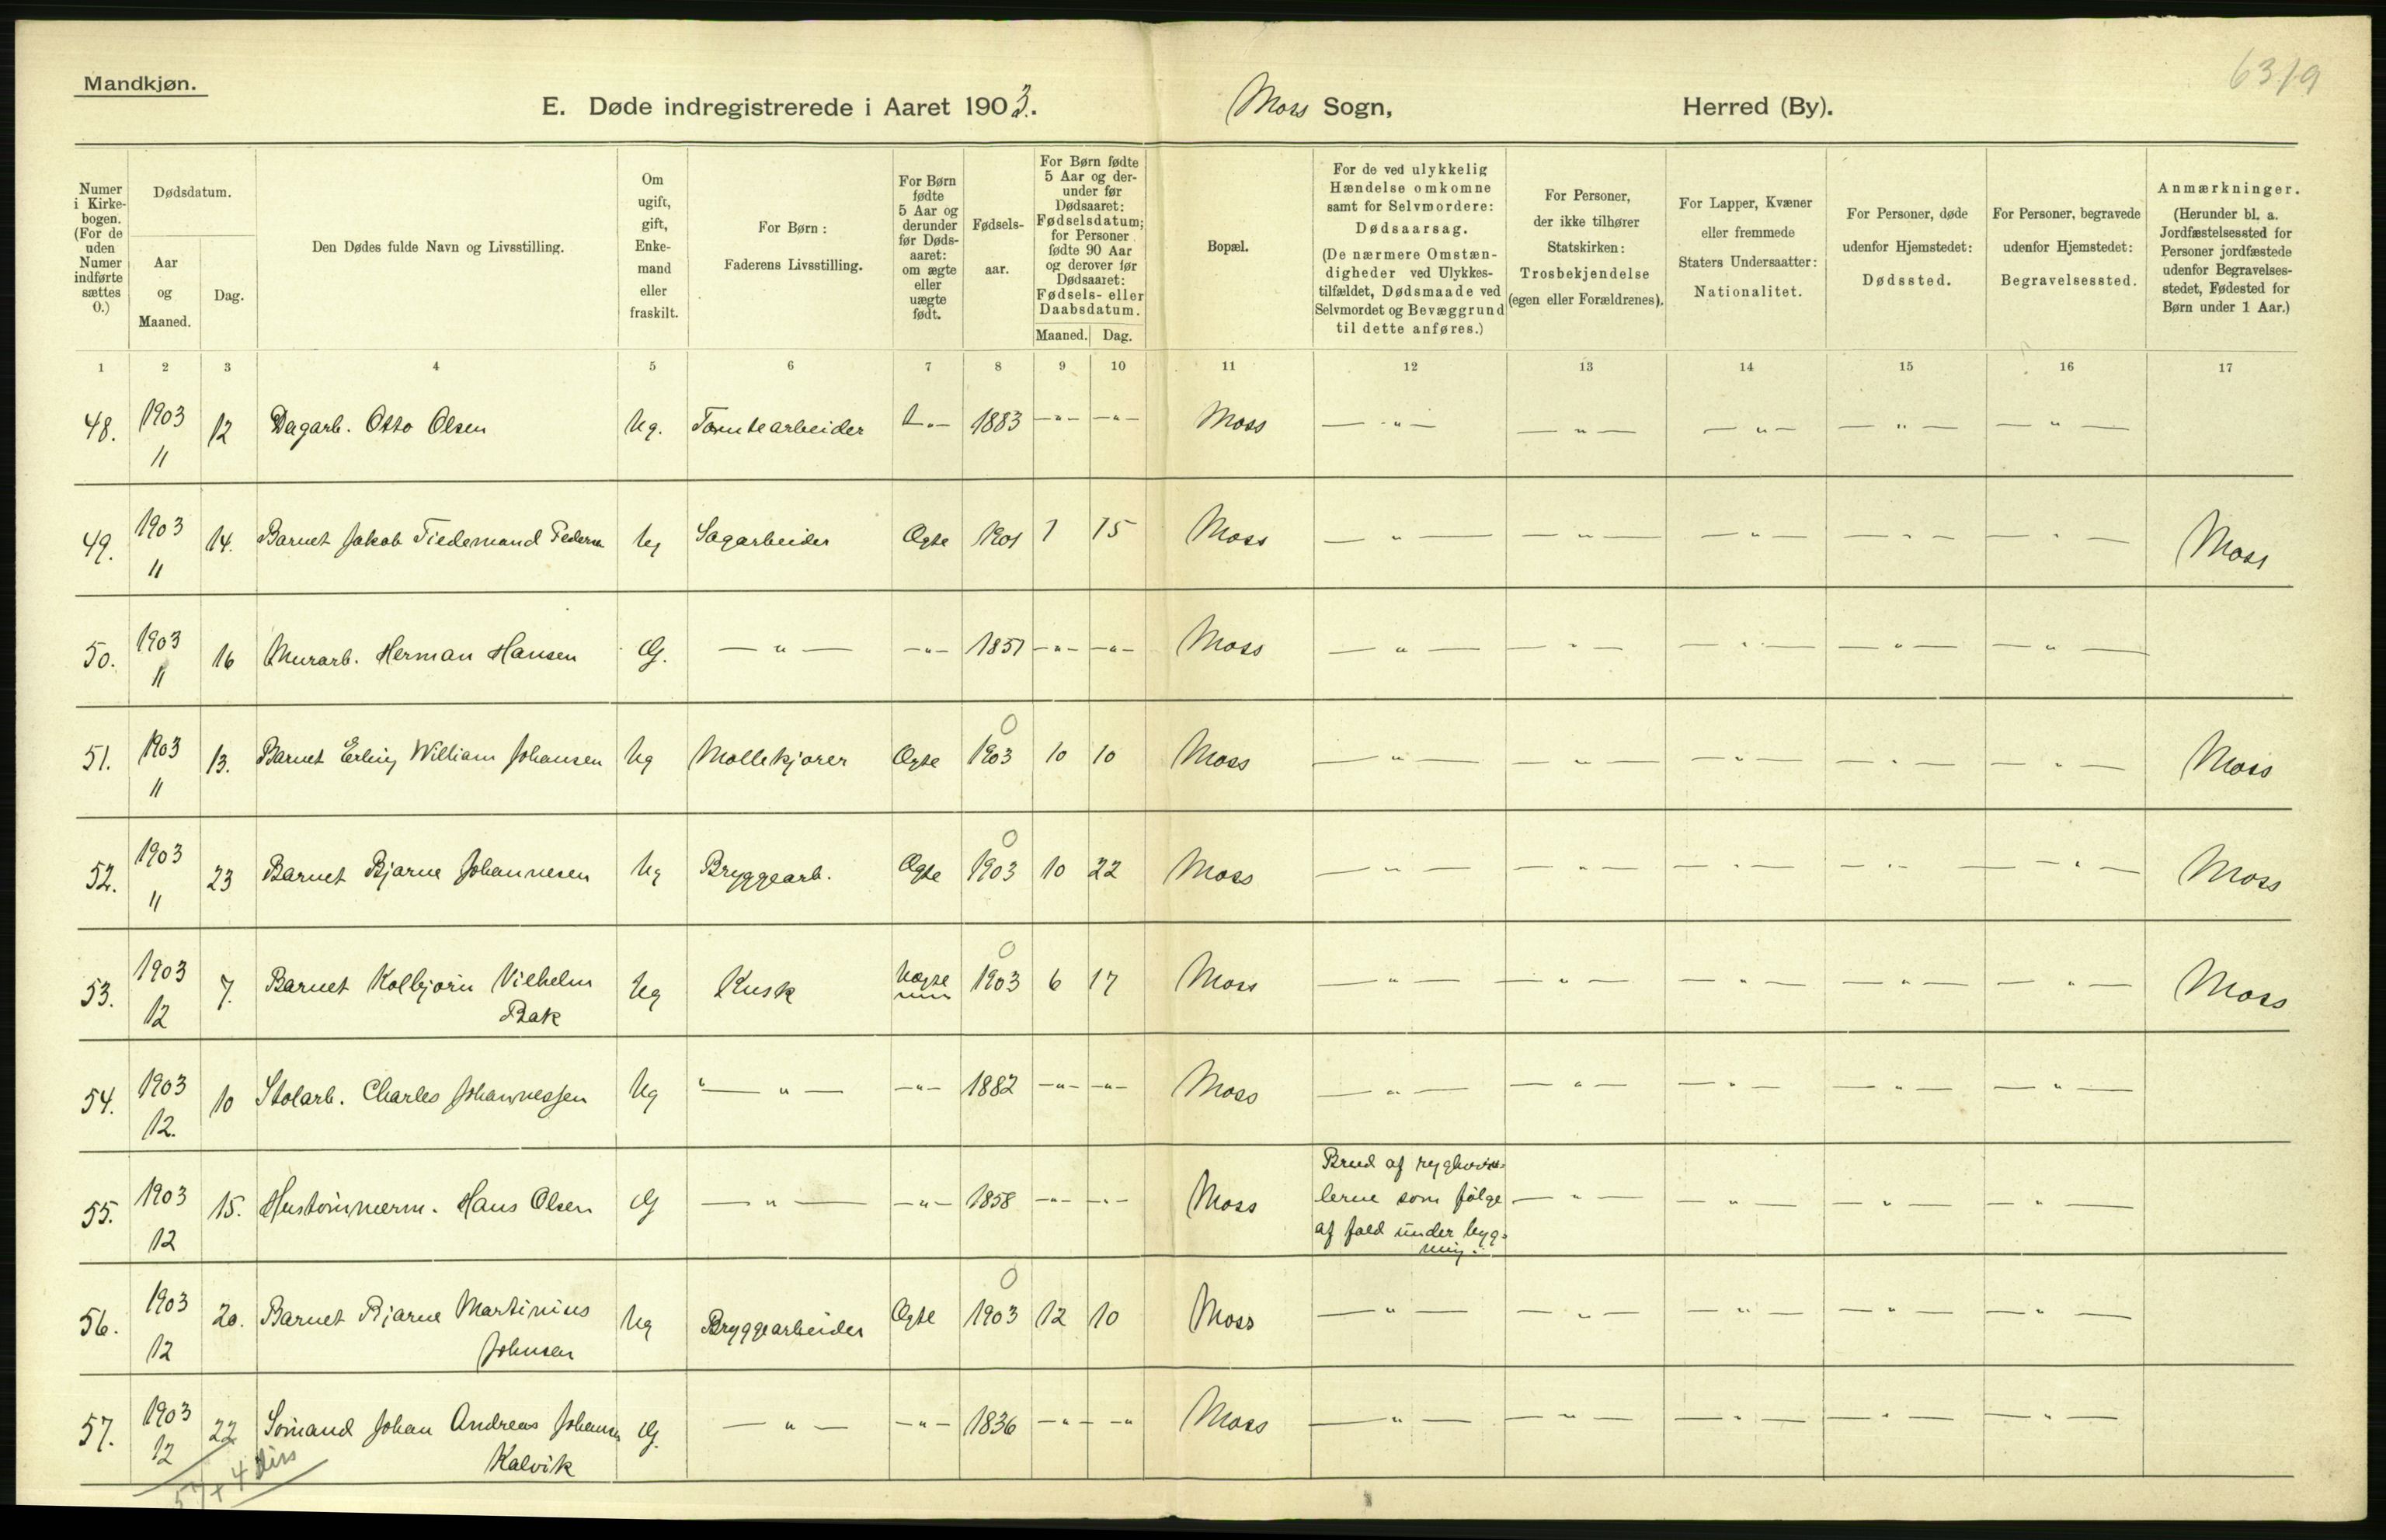 Mandkjøn.
6319
E. Døde indregistrerede i Aaret 1903.
Moss Sogn,
Herred (By).
Numer
i Kirke-
bogen.
(For de
uden
Numer
indførte
sættes
O.)
Dødsdatum.
Aar
og
Maaned.
Dag.
Den Dødes fulde Navn og Livsstilling.
Om
ugift,
gift,
Enke-
mand
eller
fraskilt.
For Børn:
Faderens Livsstilling.
For Børn
fødte
5 Aar og
derunder
før Døds-
aaret:
om ægte
eller
uægte
født.
Fødsels-
aar.
For Børn fødte
5 Aar og der-
under før
Dødsaaret:
Fødselsdatum;
for Personer
fødte 90 Aar
og derover før
Dødsaaret:
Fødsels- eller
Daabsdatum.
Maaned. Dag.
Bopæl.
For de ved ulykkelig
Hændelse omkomne
samt for Selvmordere:
Dødsaarsag.
(De nærmere Omstæn-
digheder ved Ulykkes-
tilfældet, Dødsmaade ved
Selvmordet og Bevæggrund
til dette anføres.)
For Personer,
der ikke tilhører
Statskirken:
Trosbekjendelse
(egen eller Forældrenes).
For Lapper, Kvæner
eller fremmede
Staters Undersaatter:
Nationalitet.
For Personer, døde
udenfor Hjemstedet:
Dødssted.
For Personer, begravede
udenfor Hjemstedet:
Begravelsessted.
Anmærkninger.
(Herunder bl. a.
Jordfæstelsessted for
Personer jordfæstede
udenfor Begravelses-
stedet, Fødested for
Børn under 1 Aar.)
1 2 3 4 5 6 7 8 9 10 11 12 13 14 15 16 17
48. 1903 12 Dagarb. Otto Olsen Ug. Tomtearbeider —"— 1883 —"— —"— Moss —"— —"— —"— —"— —"—
11
49. 1903 14. Barnet Jakob Tiedemand Pedersen Ug Sagarbeider Ægte 1901 7 15 Moss —"— —"— —"— —"— —"— Moss
11
50. 1903 16 Murarb. Herman Hansen G. —"— —"— 1851 —"— —"— Moss —"— —"— —"— —"— —"—
11
0
51. 1903 13. Barnet Erling William Johansen Ug Møllekjører Ægte 1903 10 10 Moss —"— —"— —"— —"— —"— Moss
11
0
52. 1903 23 Barnet Bjarne Johannesen Ug Bryggearb. Ægte 1903 10 22 Moss —"— —"— —"— —"— —"— Moss
11
0
53. 1903 7. Barnet Kolbjørn Vilhelm Ug Kusk Uægte 1903 6 17 Moss —"— —"— —"— —"— —"— Moss
12 Bak
54. 1903 10 Stolarb. Charles Johannessen Ug —"— —"— 1882 —"— —"— Moss —"— —"— —"— —"— —"—
12.
Brud af ryghvirv-
55. 1903 15. Hustømmerm. Hans Olsen G —"— —"— 1858 —"— —"— Moss lerne som følge —"— —"— —"— —"—
12 af fald under byg-
ning.
0
56. 1903 20. Barnet Bjarne Martinius Ug Bryggearbeider Ægte 1903 12 10 Moss —"— —"— —"— —"— —"—
12 Johnsen
57. 1903 22 Sømand Johan Andreas Johansen G. —"— —"— 1836 —"— —"— Moss —"— —"— —"— —"— —"—
12 Kalvik
57 + 4